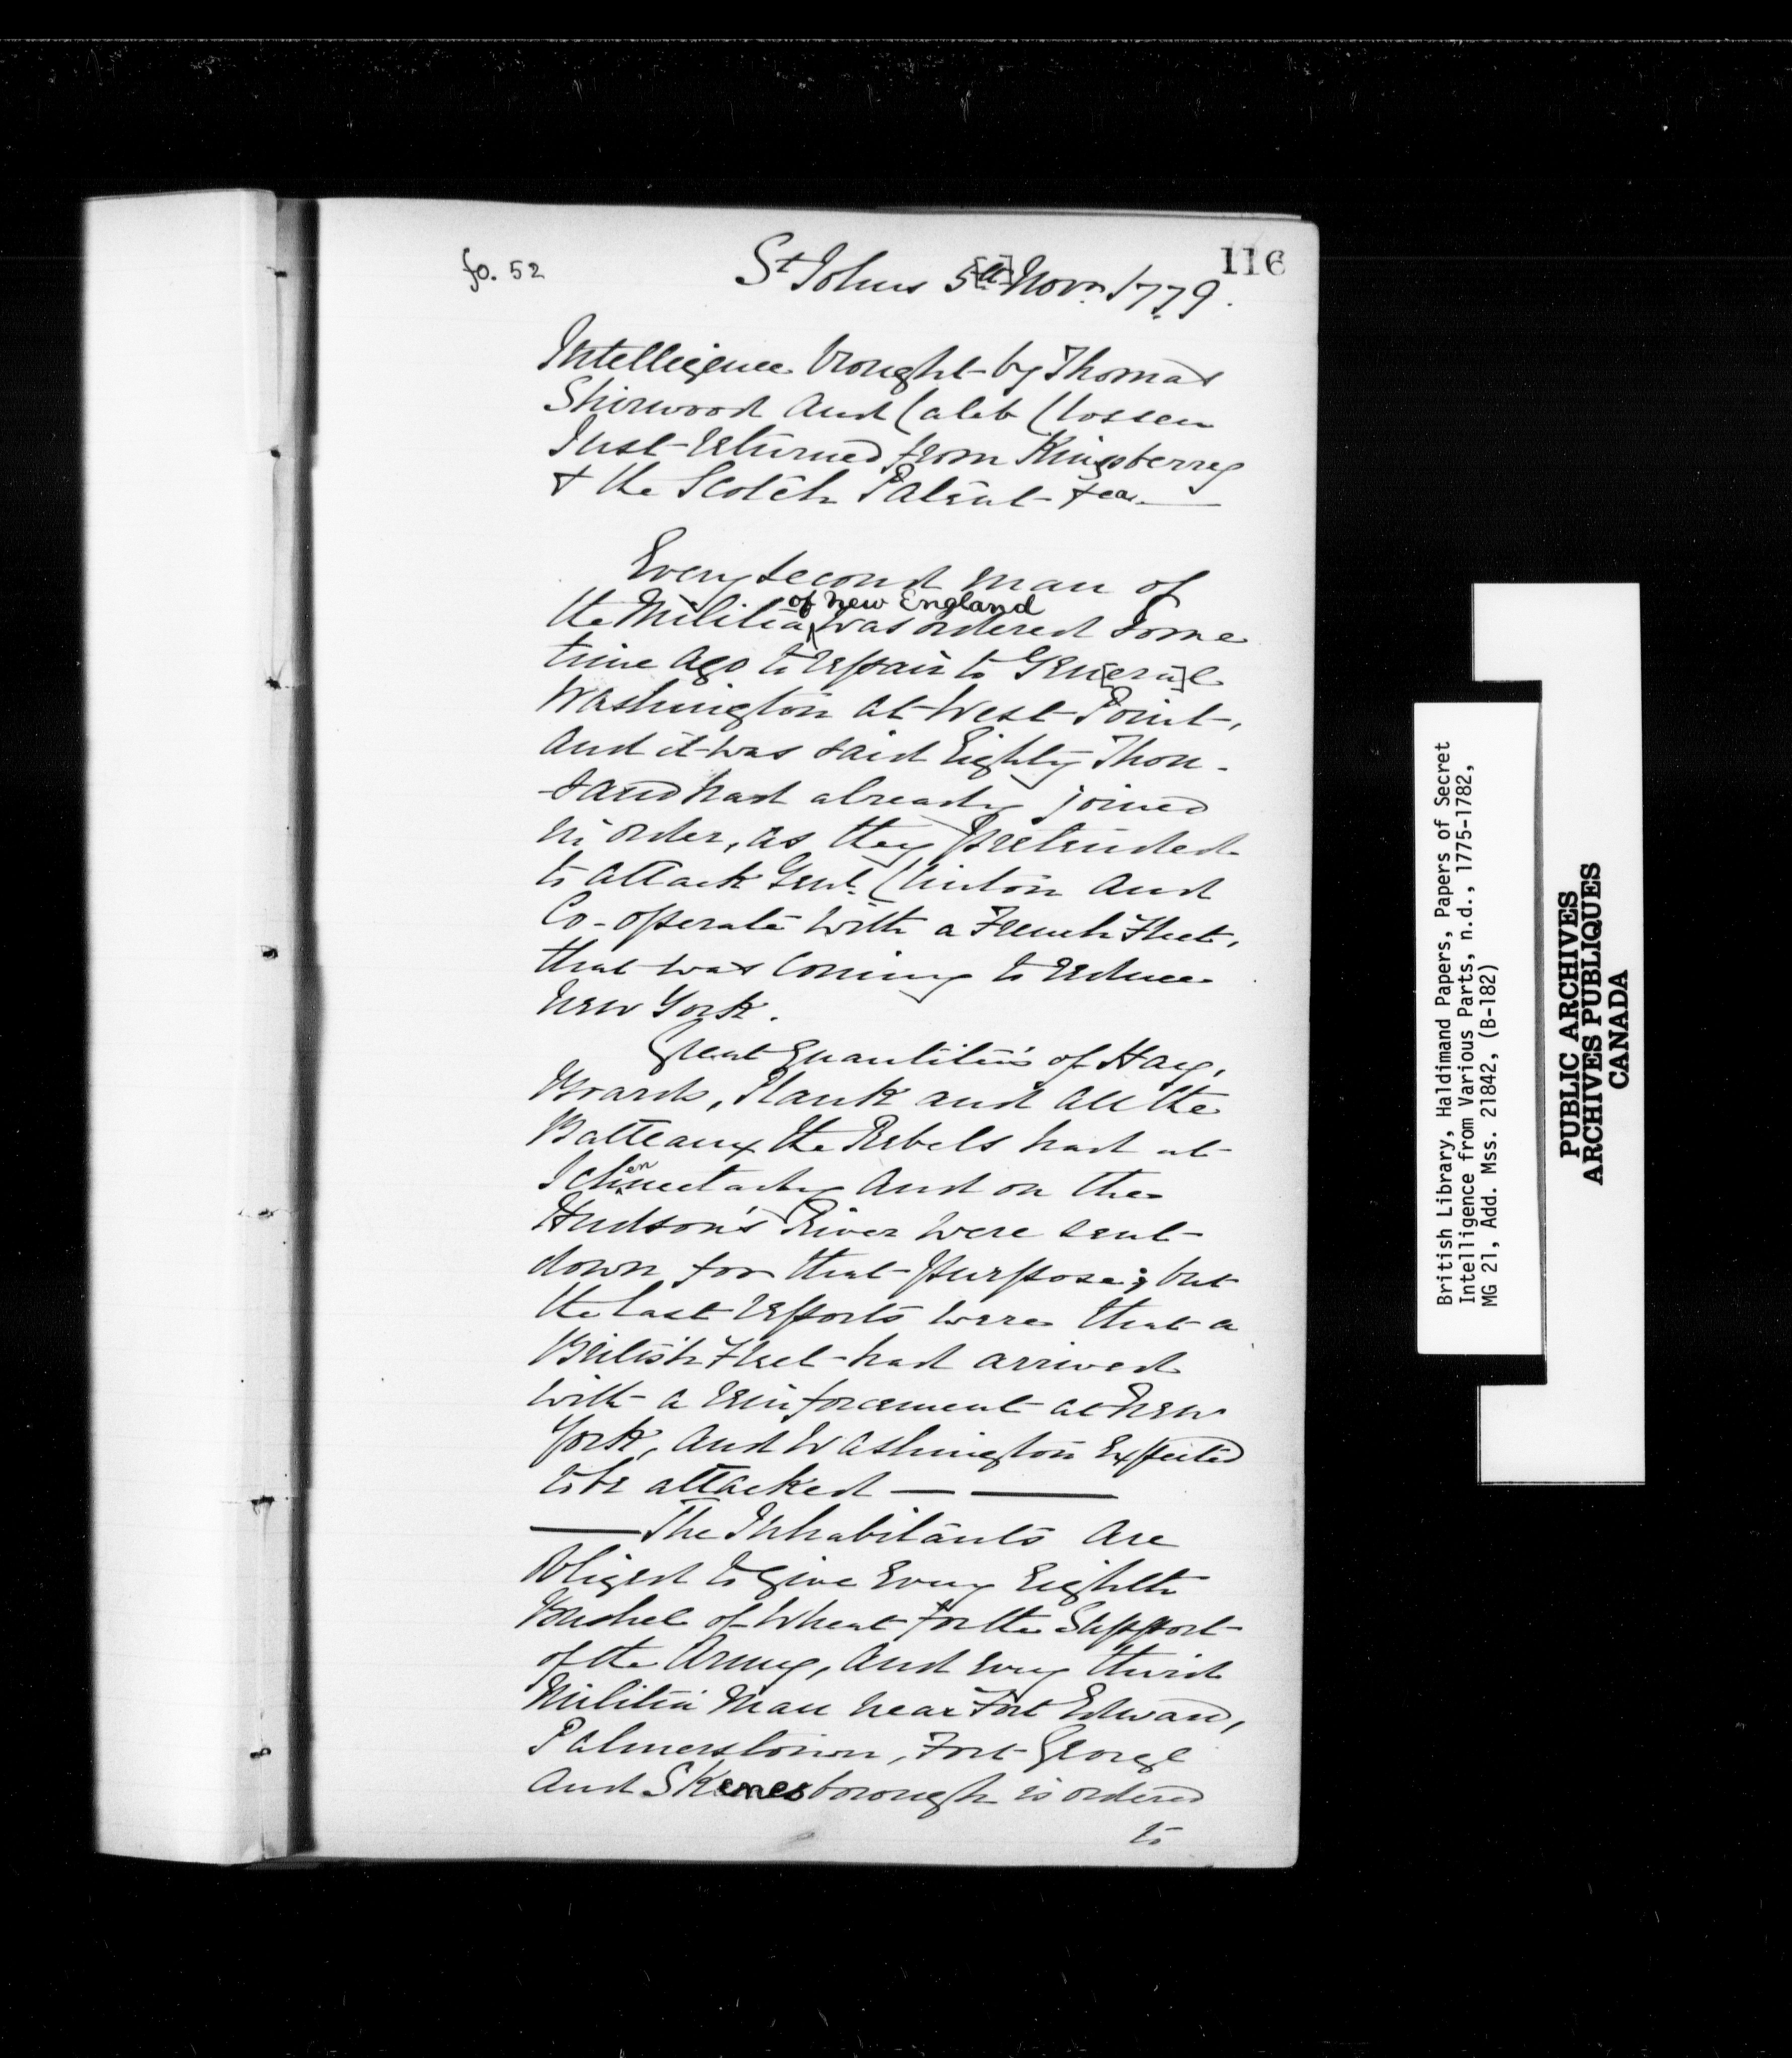 116
fo. 52
St Johns 5[th] Novr 1779.
Intelligence brought by Thomas
Sherwood and Caleb Clossen
Just returned from Kingsberry
& the Scotch Patent &ca
Every second man of
of New England
the Militia was ordered some
time ago to repair to Gen[era]l
Washington at West Point,
and it was said Eighty Thou-
-sand had already joined
in order, as they pretended
to attack Genl. Clinton and
Co-operate with a French Fleet,
that was coming to reduce
New York.
Great Quantities of Hay,
Boards, Plank and all the
Batteaux the Rebels had at
Schenectady and on the
Hudson's River were sent
down for that purpose; but
the last reports were that a
British Fleet had arrived
with a reinforcement at New
York, and Washington Expected
to be attacked — —
— The Inhabitants are
obliged to give every Eighth
Bushel of Wheat for the Support
of the Army, and every third
Militia Man near Fort Edward,
Palmerstown, Fort George
and Skenesborough is ordered
to
British Library, Haldimand Papers, Papers of Secret
Intelligence from Various Parts, n.d., 1775-1782,
MG 21, Add. Mss. 21842, (B-182)
PUBLIC ARCHIVES
ARCHIVES PUBLIQUES
CANADA